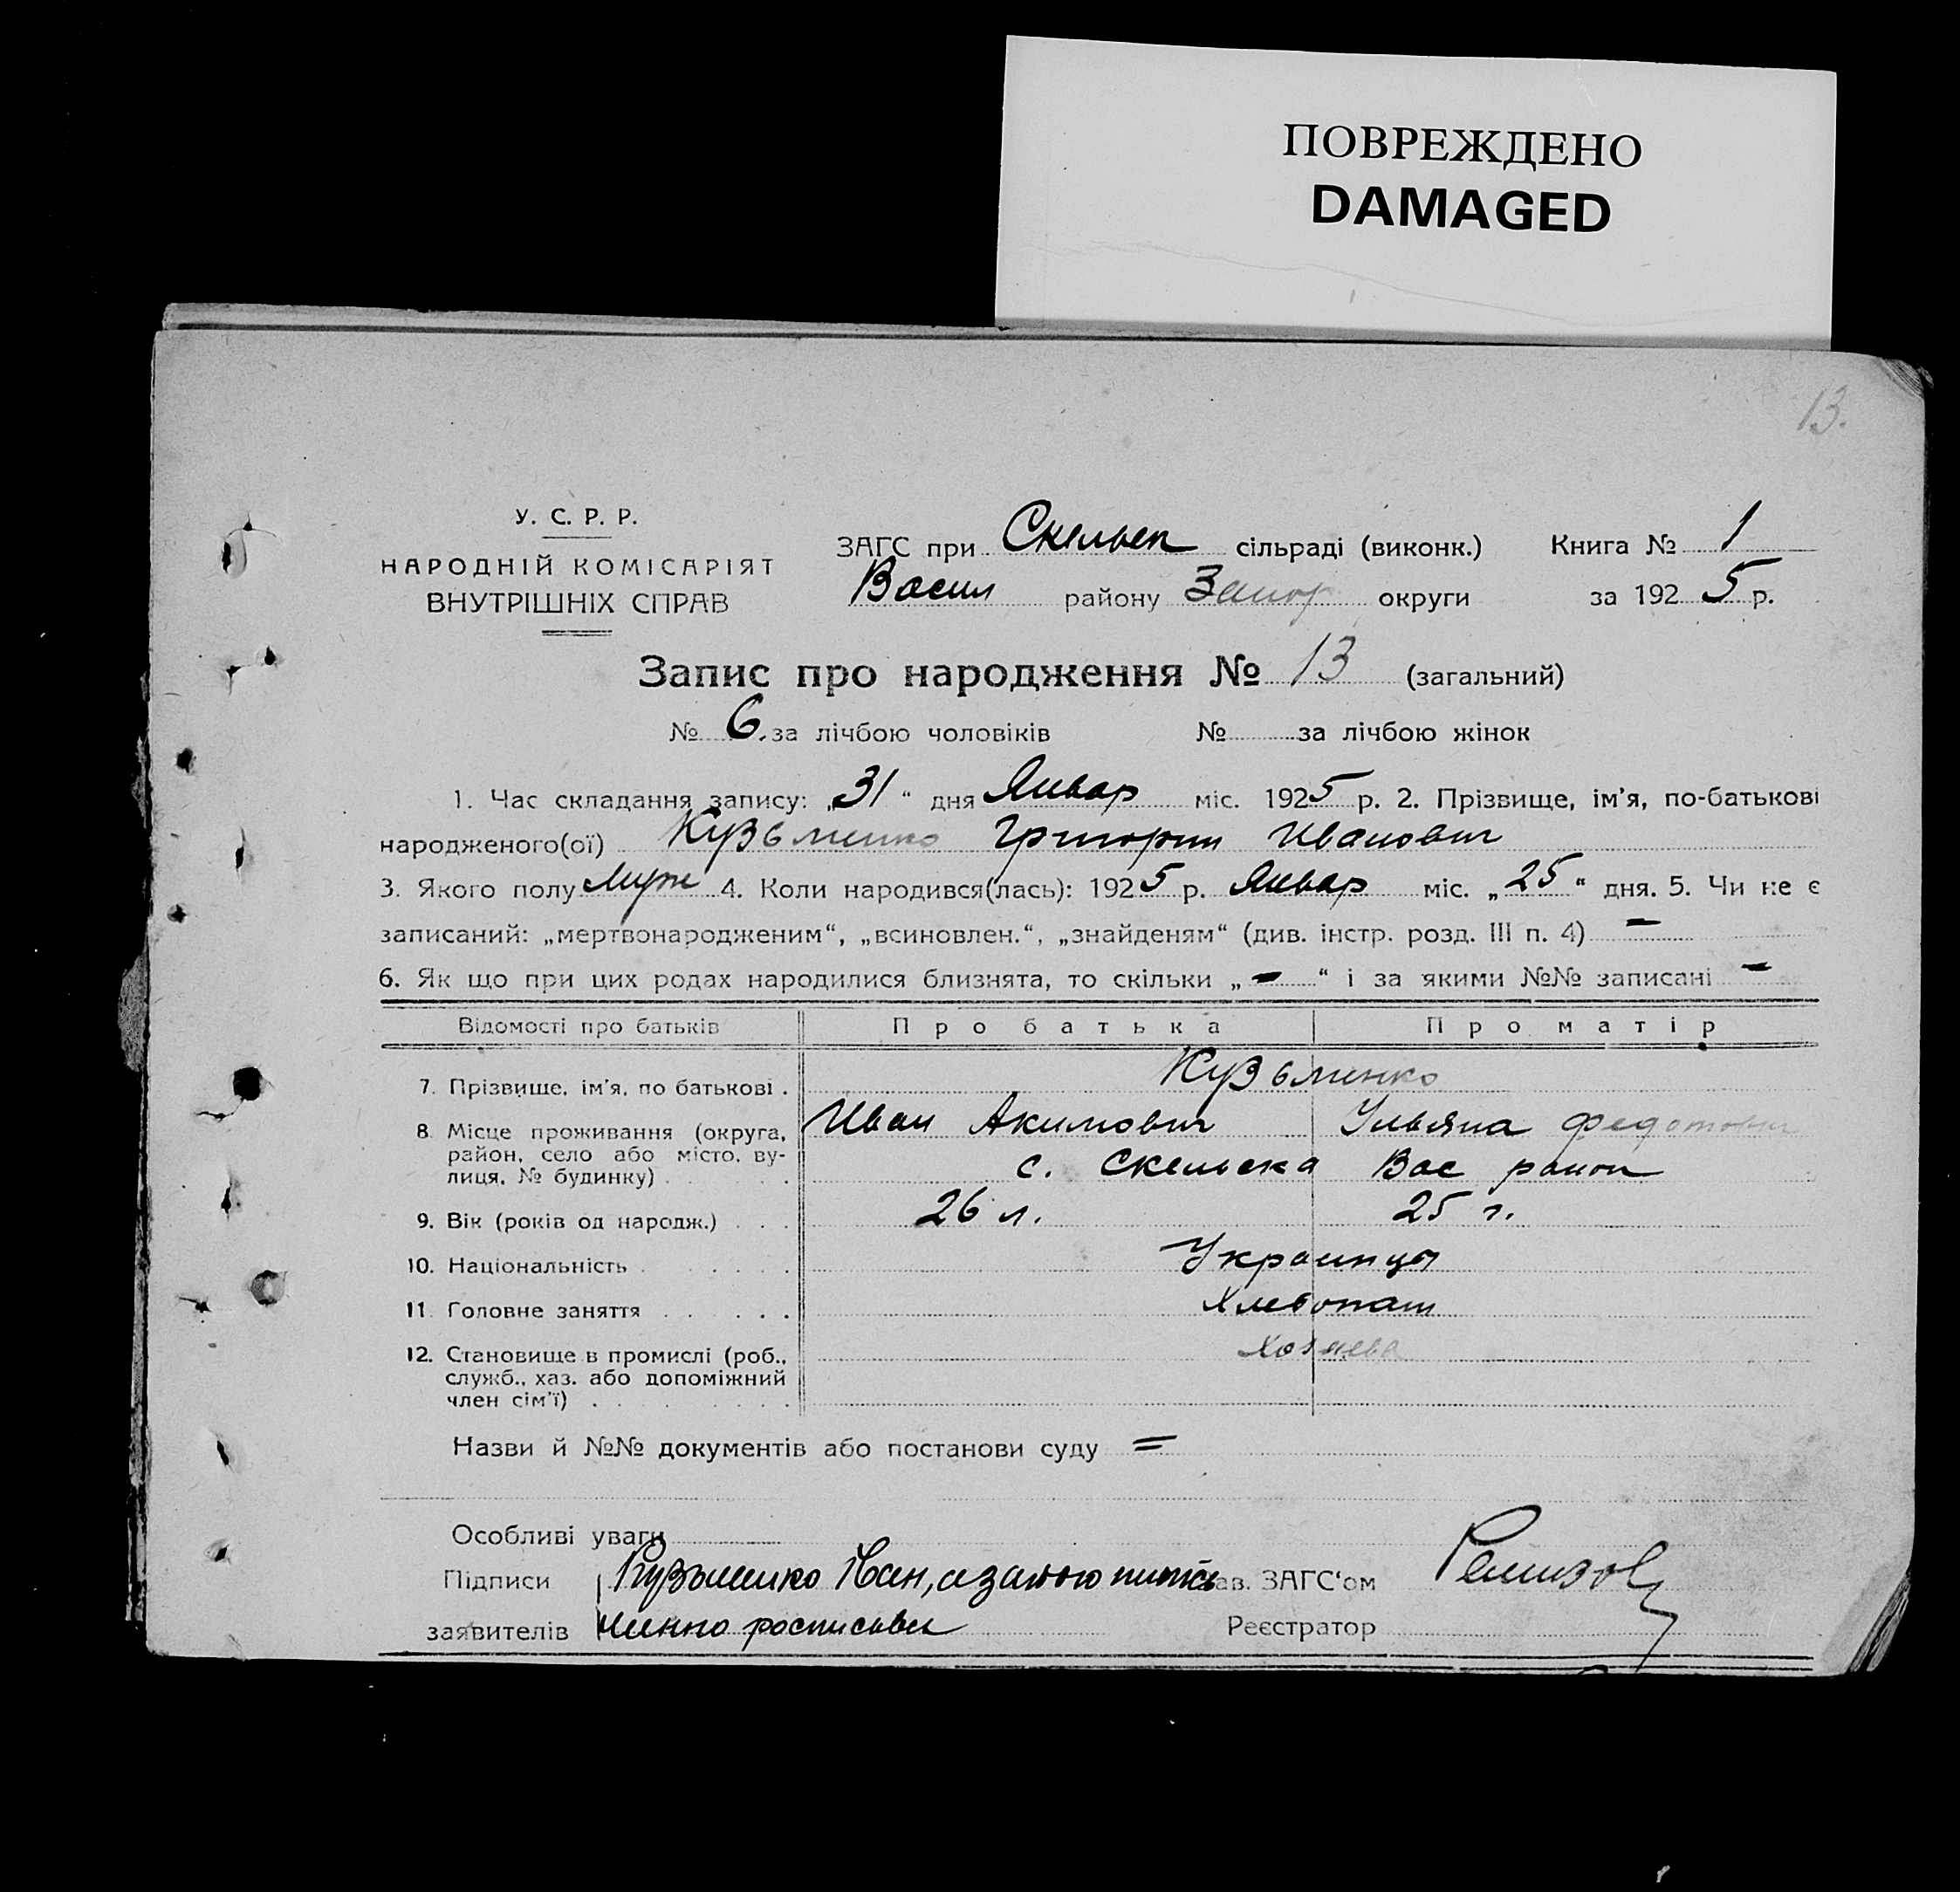 ПОВРЕЖДЕНО
DAMAGED
13.
У. С. Р. Р.
НАРОДНІЙ КОМІСАРІЯТ
ВНУТРІШНІХ СПРАВ
ЗАГС при Скельеп сільраді (виконк.) Книга № 1
Васил району Запор округи за 1925 р.
Запис про народження № 13 (загальний)
№ 6. за лічбою чоловіків № за лічбою жінок
1. Час складання запису: „31“ дня Январ міс. 1925 р. 2. Прізвище, ім’я, по-батькові
народженого(ої) Кузьменко Григорий Иванович
3. Якого полу Муж 4. Коли народився(лась): 1925 р. Январ міс. „25“ дня. 5. Чи не є
записаний: „мертвонародженим“, „всиновлен.“, „знайденям“ (див. інстр. розд. III п. 4) —
6. Як що при цих родах народилися близнята, то скільки „—“ і за якими №№ записані —
Відомості про батьків Про батька Про матір
7. Прізвище, ім’я, по батькові . Кузьменко
Иван Акимович Ульяна Федотовн
8. Місце проживання (округа,
район, село або місто, ву-
лиця, № будинку) . с. Скельска Вас район
9. Вік (років од народж.) . . . 26 л. 25 г.
10. Національність . Украинцы
11. Головне заняття . Хлебопаш
12. Становище в промислі (роб.,
служб., хаз. або допоміжний
член сім’ї) . хозяева
Назви й №№ документів або постанови суду =
Особливі уваги
Підписи Кузьменко Иван, а за зав. ЗАГС‘ом Ремизов
заявителів росписавсь Реєстратор